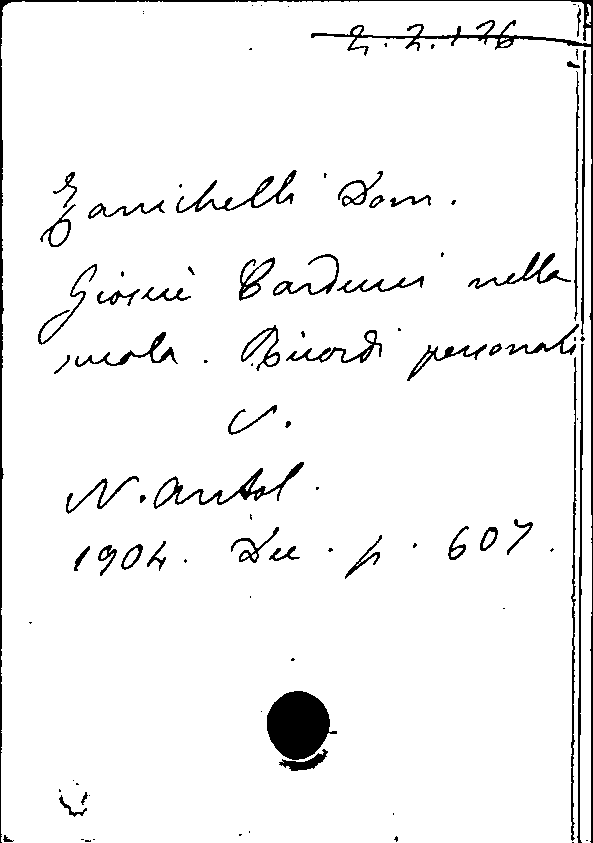 2.2.126
Zanichelli Dom.
Giosuè Carducci nella
scuola. Ricordi personali
V.
N. Antol.
1904. Dec. p. 607.